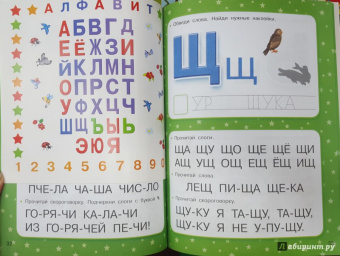 АЛФАВИТ
АБВГД
ЕЁЖЗИ
ЙКЛМН
ОПРСТ
УФХЦЧ
ШЩЪЫЬ
ЭЮЯ
0 1 2 3 4 5 6 7 8 9 0
ПЧЕ-ЛА ЧА-ША ЧИС-ЛО
Прочитай скороговорку. Подчеркни слоги с буквой Ч.
ГО-РЯ-ЧИ КА-ЛА-ЧИ
ИЗ ГО-РЯ-ЧЕЙ ПЕ-ЧИ!
Обведи слова. Найди нужные наклейки.
Щ щ
УР ЩУКА
Прочитай слоги.
ЩА ЩУ ЩО ЩЕ ЩЁ ЩИ
АЩ УЩ ОЩ ЕЩ ЁЩ ИЩ
Прочитай слова.
ЛЕЩ ПИ-ЩА ЩЕ-КА
Прочитай скороговорку.
ЩУ-КУ Я ТА-ЩУ, ТА-ЩУ,
ЩУ-КУ Я НЕ У-ПУ-ЩУ.
Лабиринт.ру